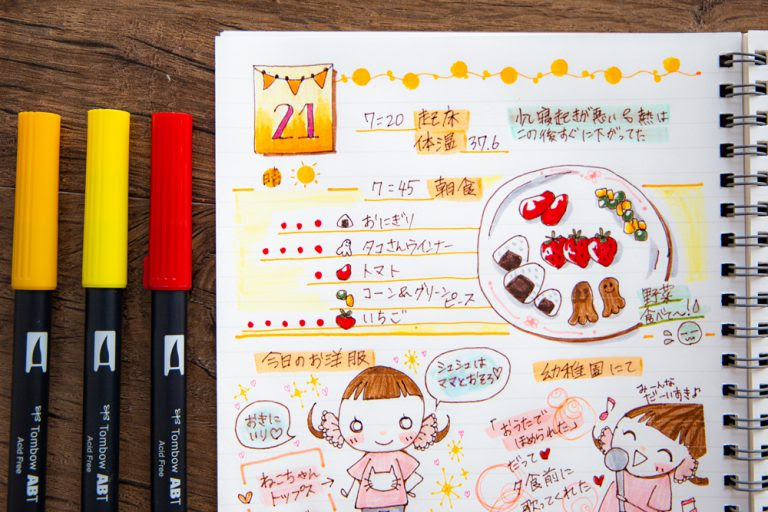 21
7:20 起床
体温 37.6
少し寝起きが悪い 熱は
この後すぐに下がってた
朝
7:45 朝食
おにぎり
タコさんウインナー
トマト
コーン&グリーン
ピース
いちご
野菜
食べて〜!
今日のお洋服
シュシュは
ママとおそろ♡
おきに
いり♡
ねこちゃん
トップス
幼稚園にて
みーんな
だーいすきよ♪
「おうたで
ほめられた」
だって♥
夕食前に
歌ってくれた
Tombow ABT
Acid Free
Tombow ABT
Acid Free
Tombow ABT
Acid Free